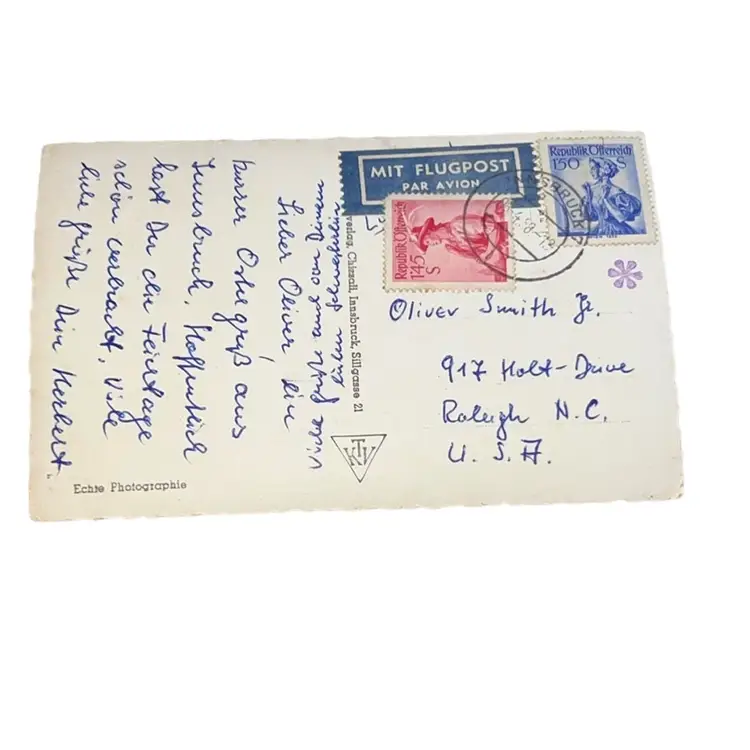 MIT FLUGPOST
PAR AVION
Republik Österreich
1.50 S
Republik Österreich
1.45 S
INNSBRUCK
Lieber Oliver Ein
kurzer Ostergruß aus
Innsbruck, Hoffentlich
hast Du die Feiertage
schön verbracht, Viele
liebe Grüße Dein Herbert.
verlag, Chizzali, Innsbruck, Sillgasse 21
KTV
Oliver Smith Jr.
917 Holt-Drive
Raleigh N.C.
U. S. A.
Echte Photographie